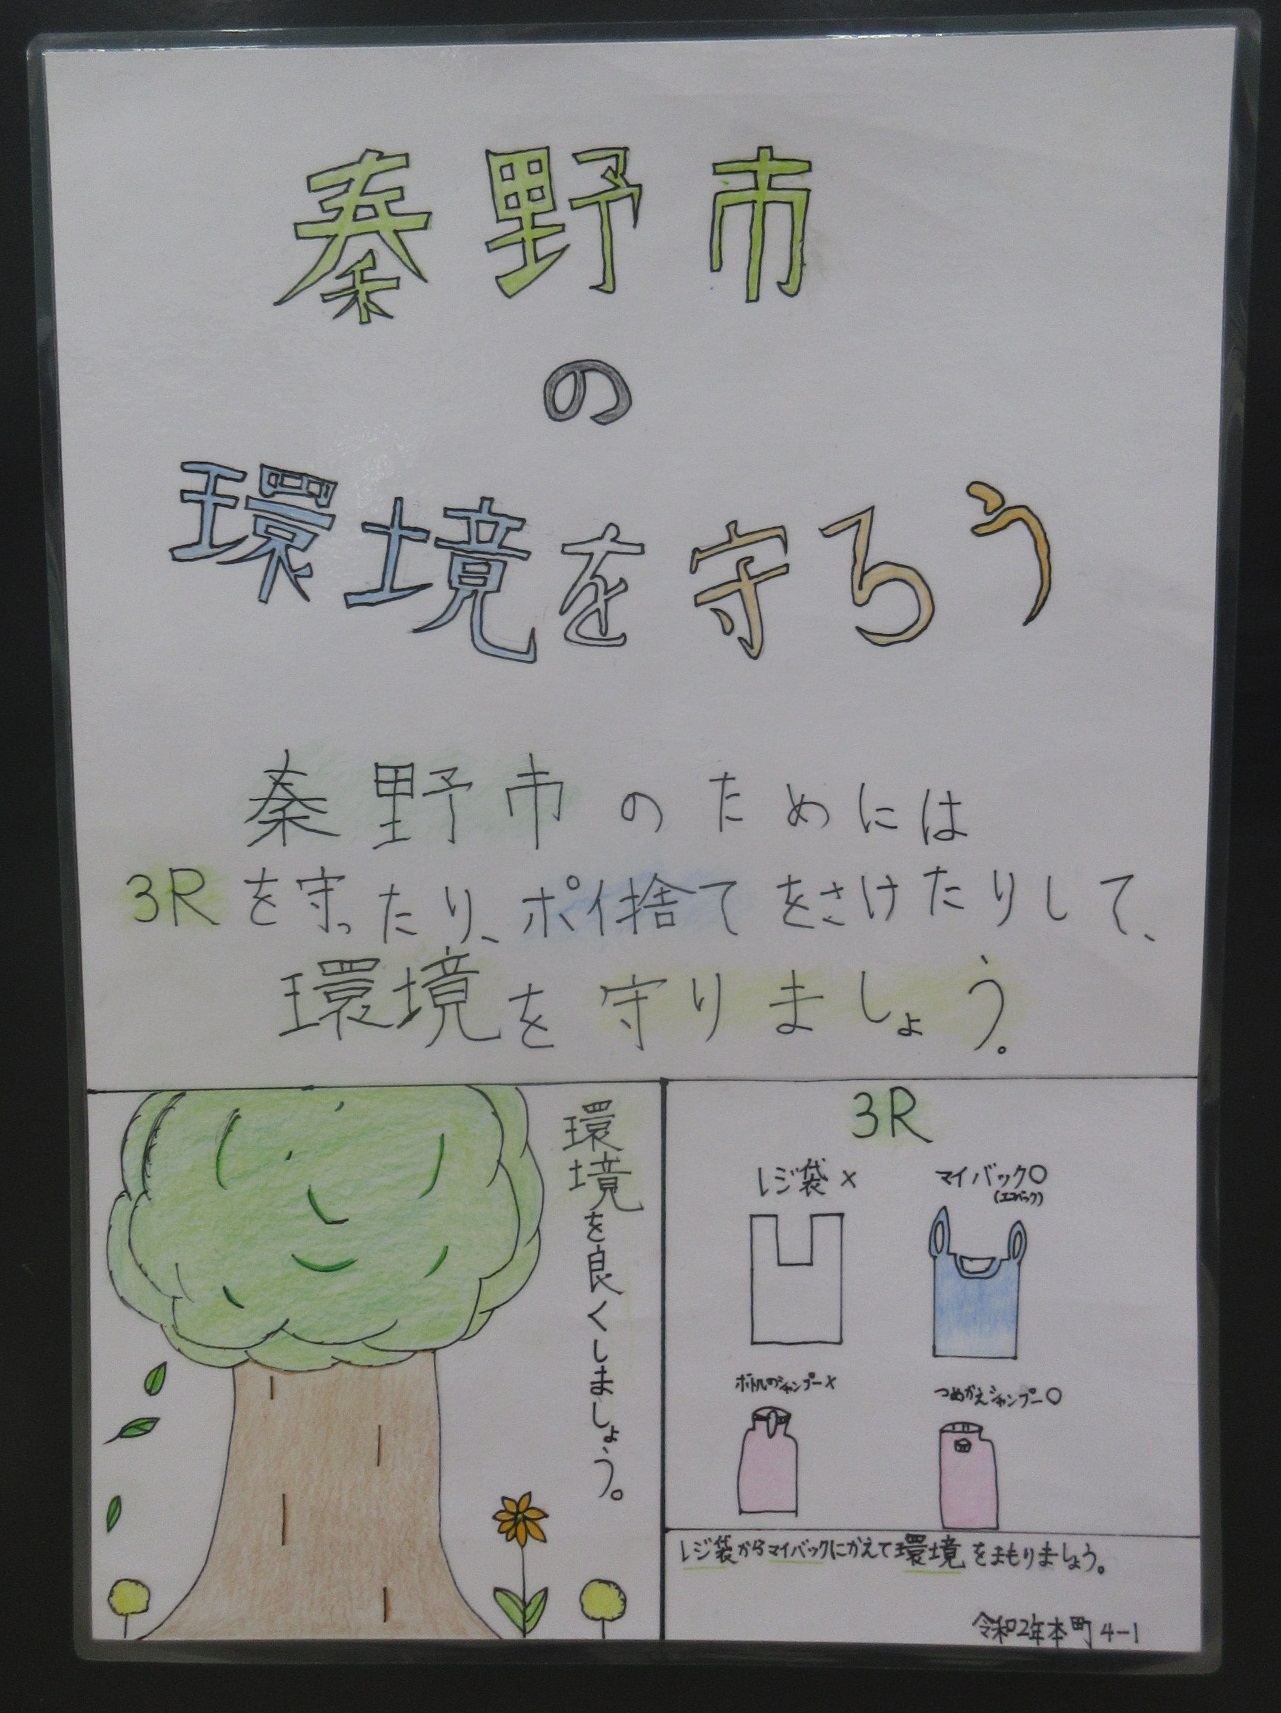 秦野市
の
環境を守ろう
秦野市のためには
3Rを守ったり、ポイ捨てをさけたりして、
環境を守りましょう。
環境を良くしましょう。
3R
レジ袋×
マイバック○
(エコバック)
ボトルのシャンプー×
つめかえシャンプー○
レジ袋からマイバックにかえて環境をまもりましょう。
令和2年本町4-1